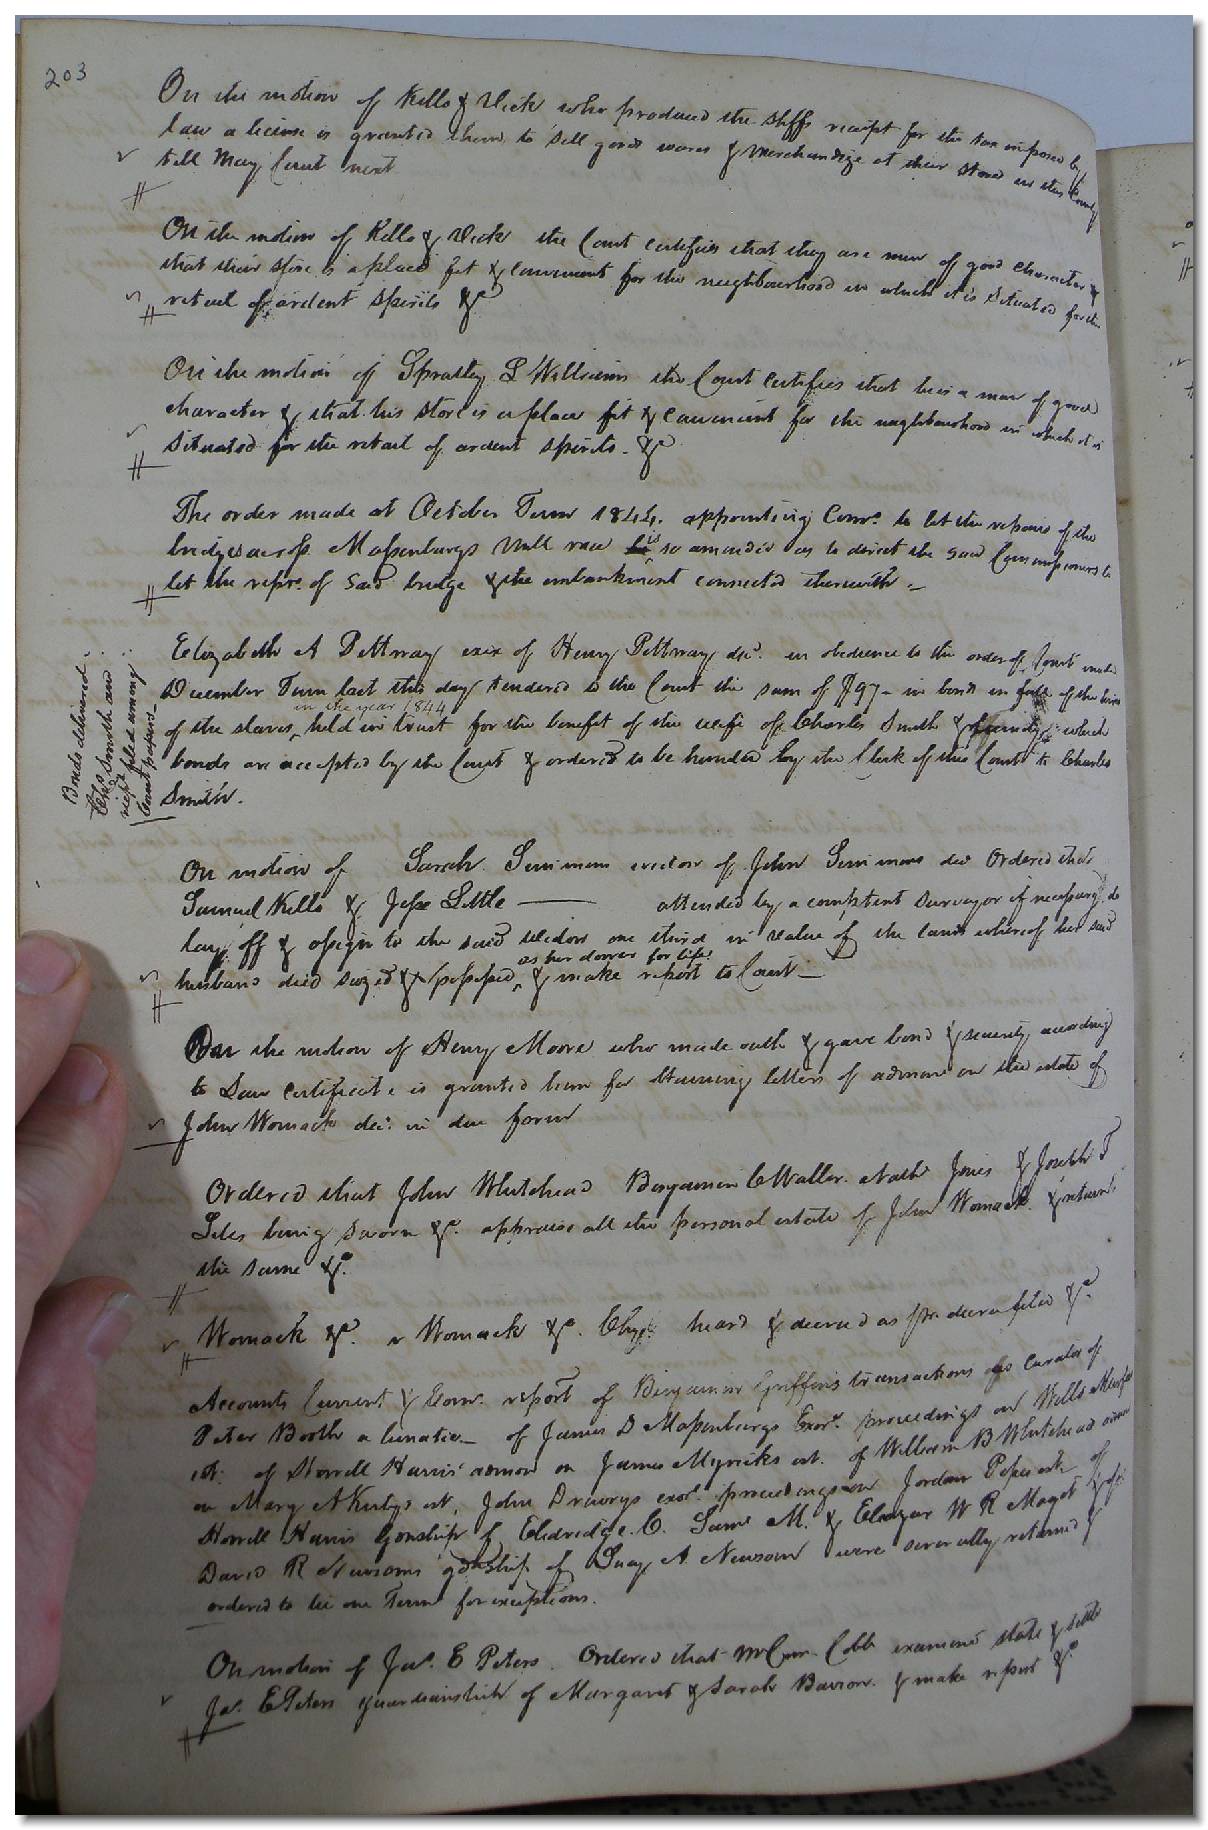 203
On the motion of Kello & Vick who produced the shffs receipt for the tax imposed by
law a license is granted them to sell goods wares & merchandize at their store in this County
till May Court next
On the motion of Kello & Vick the Court certifies that they are men of good character &
that their store is a place fit & convenient for the neighbourhood in which it is situated for the
retail of ardent spirits &c
On the motion of Spratley L Williams the Court certifies that he is a man of good
character & that his store is a place fit & convenient for the neighbourhood in which it is
situated for the retail of ardent spirits. &c
The order made at October Term 1844. appointing Comrs. to let the repairs of the
bridge across Massenburgs Mill race is so amended as to direct the said Commissioners to
let the reprs. of said bridge & the embankment connected therewith.
Elizabeth A Pettway exix of Henry Pettway decd. in obedience to the order of Court made
December Term last this day tendered to the Court the sum of $97 - in bonds in full of the hires
in the year 1844
of the slaves, held in trust for the benefit of the wife of Charles Smith & family, which
bonds are accepted by the Court & ordered to be handed by the Clerk of this Court to Charles
Smith.
Bonds delivered
Chs. Smith and
rect. filed among
Court papers
On motion of Sarah Simmons widow of John Simmons decd Ordered that
Samuel Kello & Jesse Little attended by a competent surveyor if necessary, do
lay off & assign to the said widow one third in value of the land whereof her said
as her dower for life
husband died seized & possessed, & make report to Court
On the motion of Henry Moore who made oath & gave bond & security according
to Law certificate is granted him for obtaining letters of admon on the estate of
John Womack decd. in due form
Ordered that John Whitehead Benjamin C Waller. Nath Jones & Joseph T
Liles being sworn &c. appraise all the personal estate of John Womack & return
the same &c.
Womack &c. v Womack &c. Chy: heard & decreed as pr. decree filed &c.
Accounts Current & Comr. report of Benjamin Griffins transactions as curator of
Peter Booth a lunatic of James D Massenburgs Exor. proceedings on Wills
est: of Howell Harris' admon on James Myricks est. of William B Whitehead admon
on Mary A Kirbys est, John Drewrys exor. proceedings on Jordan Popes est of
Howell Harris Gdnship of Eldredge. C. Saml M. & Eleazar W R Maget & of
David R Newsoms gdnship of Lucy A Newsom were severally returned &
ordered to lie one Term for exceptions.
On motion of Jas. E Peters. Ordered that Mr Comr. Cobb examine state & settle
Jas. E Peters guardianship of Margaret & Sarah Barrow. & make report &c